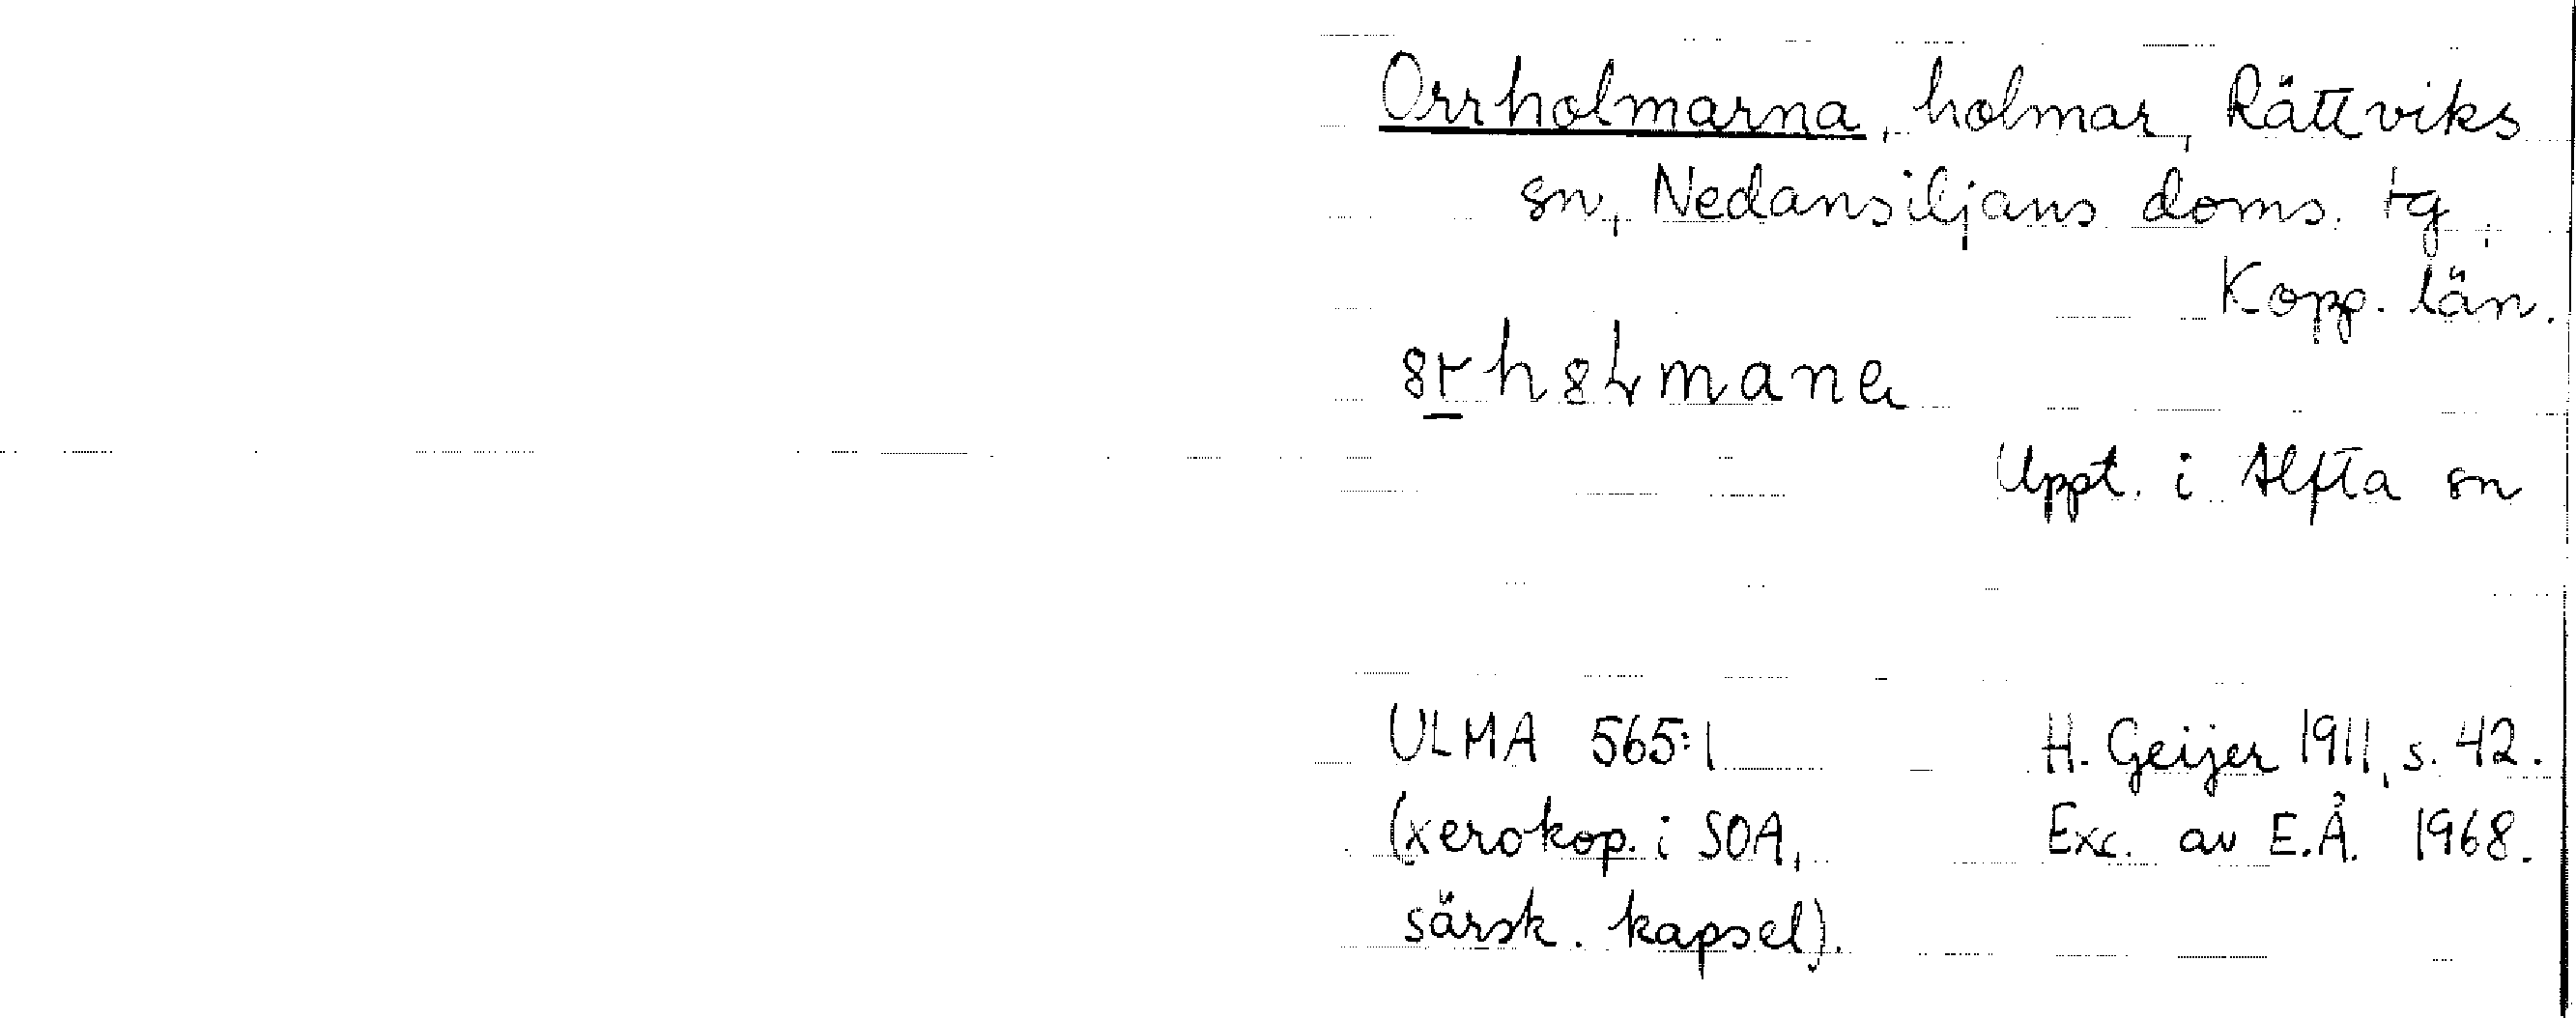 Orrholmarna, holmar, Rättviks
sn, Nedansiljans doms. tg,
Kopp. län.
Uppt. i Alfta sn
ULMA 565:1 H. Geijer 1911, s. 42.
(xerokop. i SOA, Exc. av E.Å. 1968.
särsk. kapsel).